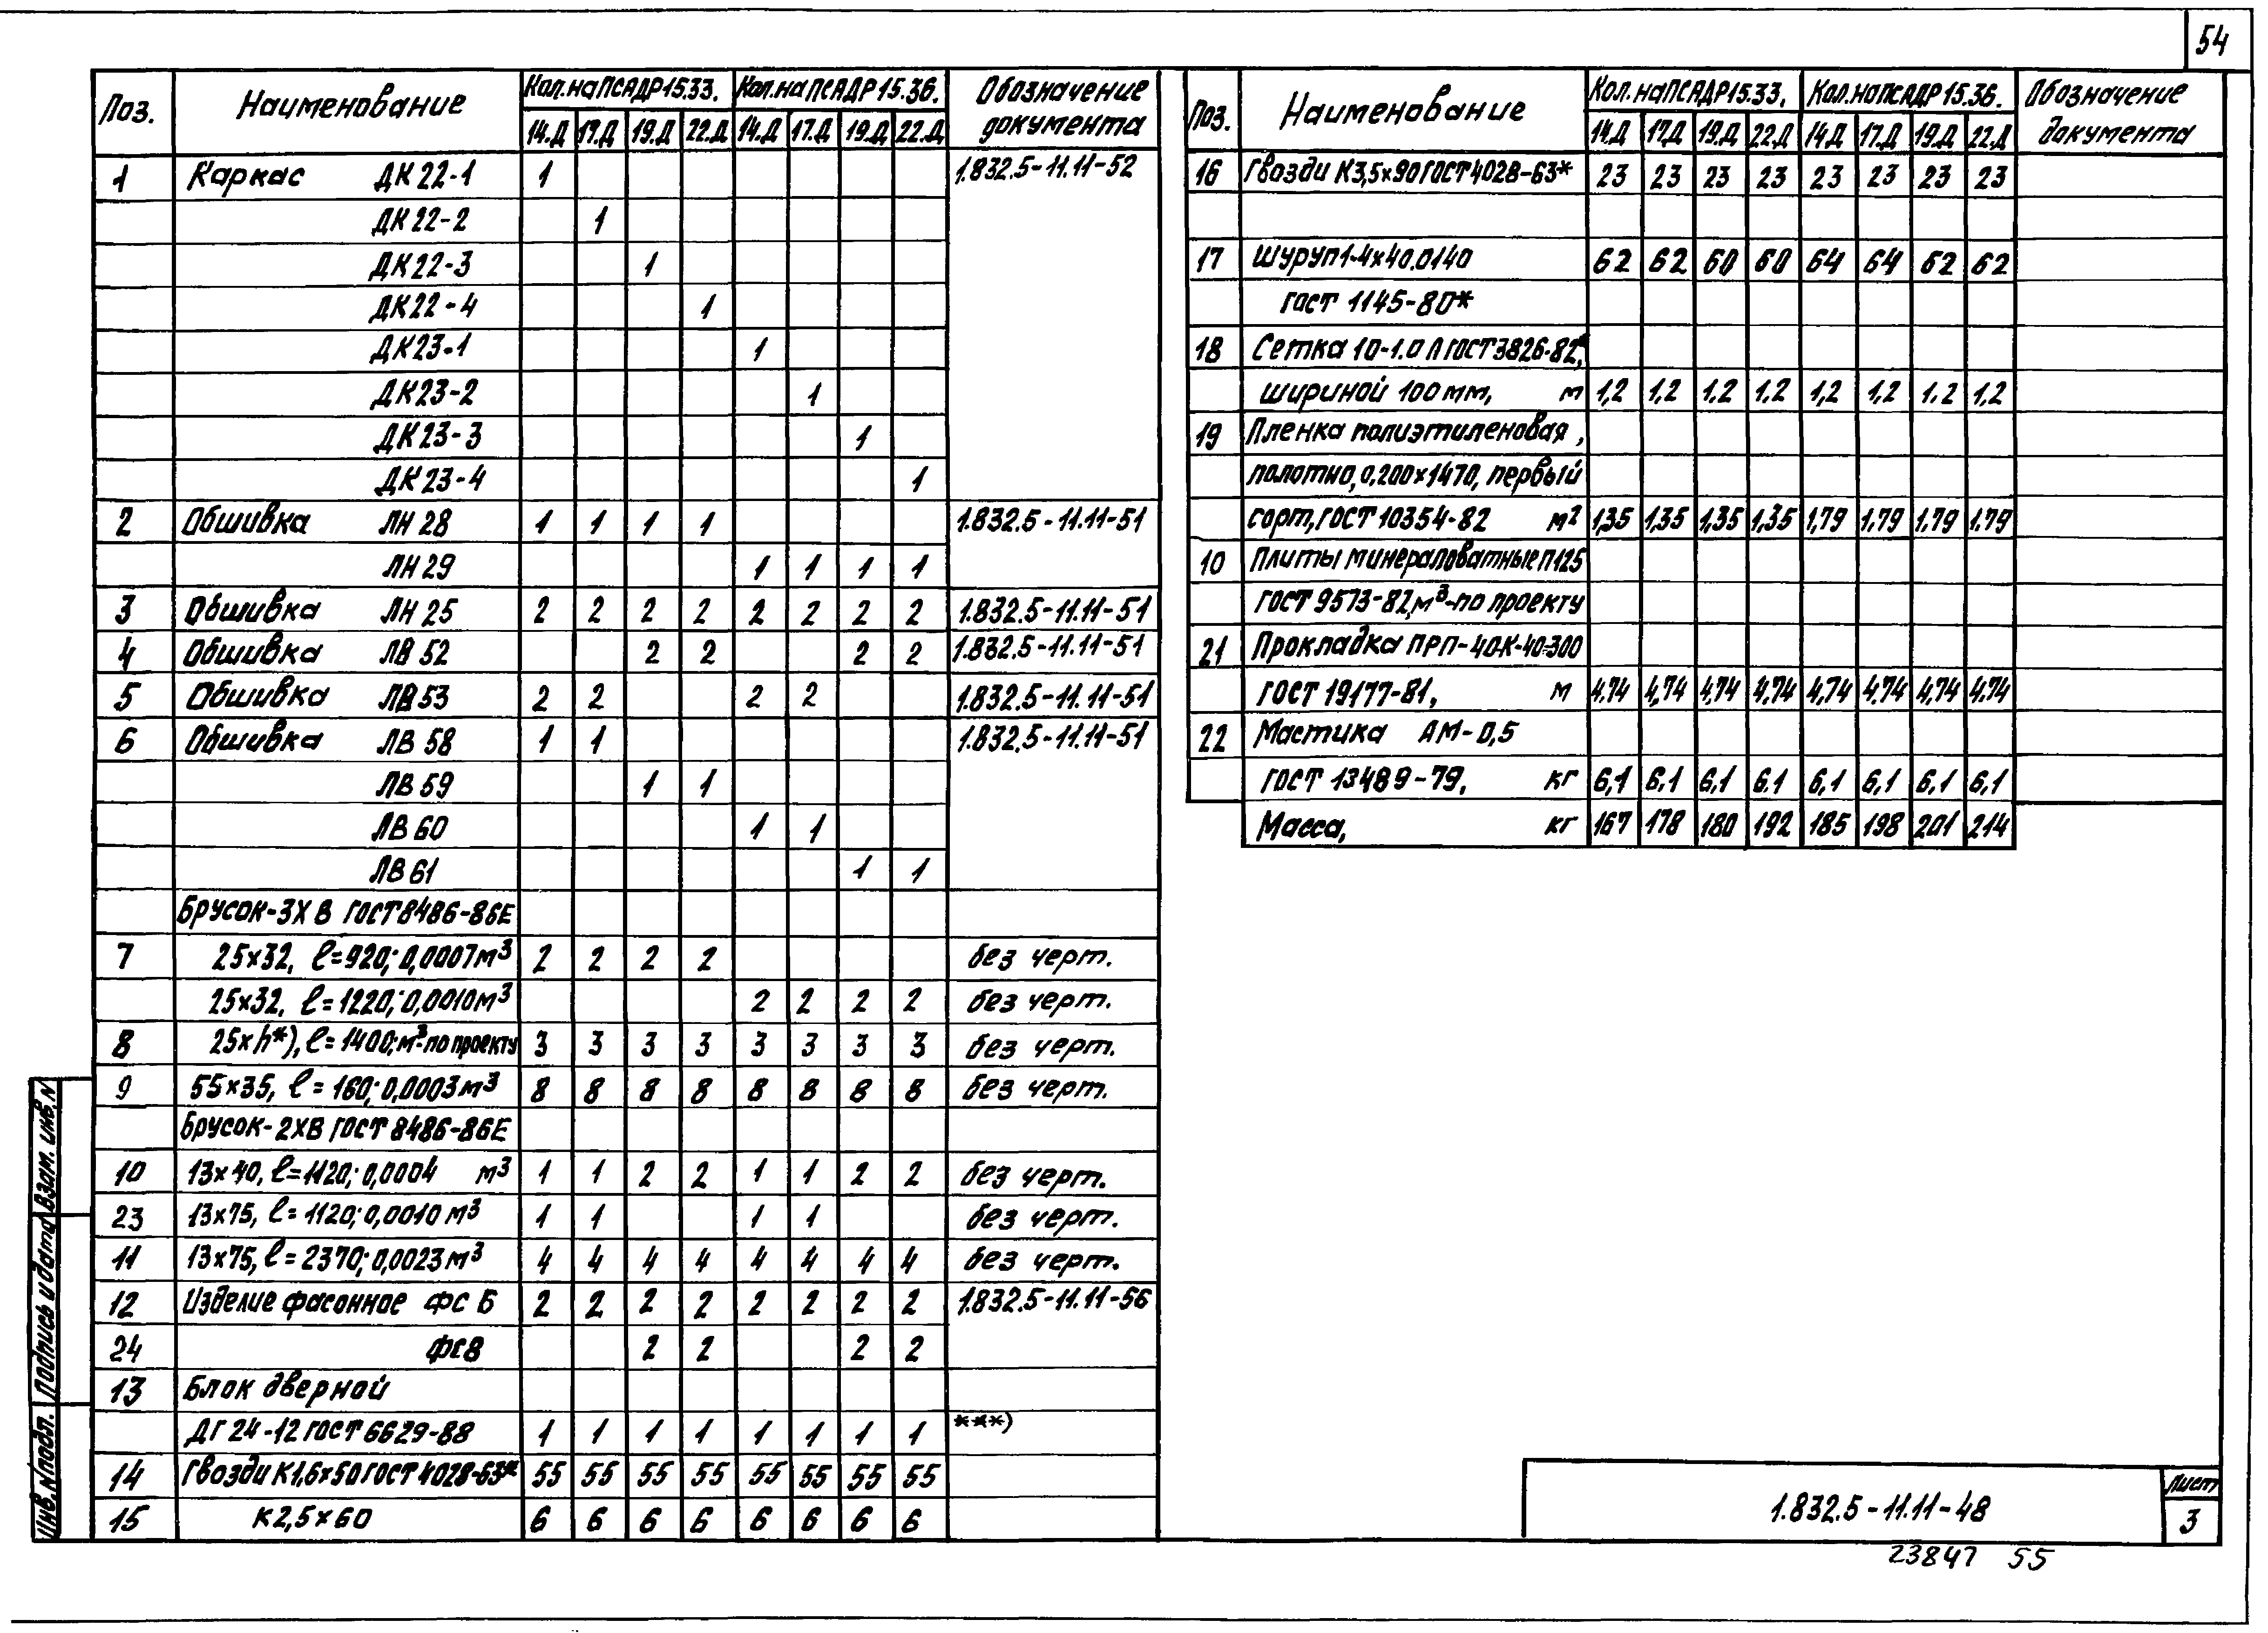 54
Поз. Наименование Кол. на ПСАДР15.33. Кол. на ПСАДР15.36. Обозначение документа
14.Д 17.Д 19.Д 22.Д 14.Д 17.Д 19.Д 22.Д
1 Каркас ДК22-1 1 1.832.5-11.11-52
ДК22-2 1
ДК22-3 1
ДК22-4 1
ДК23-1 1
ДК23-2 1
ДК23-3 1
ДК23-4 1
2 Обшивка ЛН 28 1 1 1 1 1.832.5-11.11-51
ЛН 29 1 1 1 1
3 Обшивка ЛН 25 2 2 2 2 2 2 2 2 1.832.5-11.11-51
4 Обшивка ЛВ 52 2 2 2 2 1.832.5-11.11-51
5 Обшивка ЛВ 53 2 2 2 2 1.832.5-11.11-51
6 Обшивка ЛВ 58 1 1 1.832.5-11.11-51
ЛВ 59 1 1
ЛВ 60 1 1
ЛВ 61 1 1
Брусок-3ХВ ГОСТ8486-86Е
7 25×32, ℓ=920; 0,0007м³ 2 2 2 2 без черт.
25×32, ℓ=1220; 0,0010м³ 2 2 2 2 без черт.
8 25×h*), ℓ=1400; м³-по проекту 3 3 3 3 3 3 3 3 без черт.
9 55×35, ℓ=160; 0,0003м³ 8 8 8 8 8 8 8 8 без черт.
Брусок-2ХВ ГОСТ 8486-86Е
10 13×40, ℓ=1120; 0,0004 м³ 1 1 2 2 1 1 2 2 без черт.
23 13×75, ℓ=1120; 0,0010 м³ 1 1 1 1 без черт.
11 13×75, ℓ=2370; 0,0023м³ 4 4 4 4 4 4 4 4 без черт.
12 Изделие фасонное ФС Б 2 2 2 2 2 2 2 2 1.832.5-11.11-56
24 ФС8 2 2 2 2
13 Блок дверной
ДГ24-12 ГОСТ 6629-88 1 1 1 1 1 1 1 1 ***)
14 Гвозди К1,6×50 ГОСТ 4028-63* 55 55 55 55 55 55 55 55
15 К2,5×60 6 6 6 6 6 6 6 6
Поз. Наименование Кол. на ПСАДР15.33. Кол. на ПСАДР15.36. Обозначение документа
14.Д 17.Д 19.Д 22.Д 14.Д 17.Д 19.Д 22.Д
16 Гвозди К3,5×90 ГОСТ 4028-63* 23 23 23 23 23 23 23 23
17 Шуруп1-4×40.0140 62 62 60 60 64 64 62 62
ГОСТ 1145-80*
18 Сетка 10-1.0 Л ГОСТ3826-82,
шириной 100мм, м 1,2 1,2 1,2 1,2 1,2 1,2 1.2 1,2
19 Пленка полиэтиленовая,
полотно, 0,200×1470, первый
сорт, ГОСТ 10354-82 м² 1,35 1,35 1,35 1,35 1,79 1.79 1.79 1.79
10 Плиты минераловатные П125
ГОСТ 9573-82, м³-по проекту
21 Прокладка ПРП-40-К-40-300
ГОСТ 19177-81, м 4,74 4,74 4,74 4,74 4,74 4,74 4,74 4,74
22 Мастика АМ-0,5
ГОСТ 13489-79, кг 6,1 6,1 6,1 6.1 6,1 6,1 6,1 6,1
Масса, кг 167 178 180 192 185 198 201 214
Инв. N подл. Подпись и дата Взам. инв. N
1.832.5-11.11-48
Лист
3
23847 55